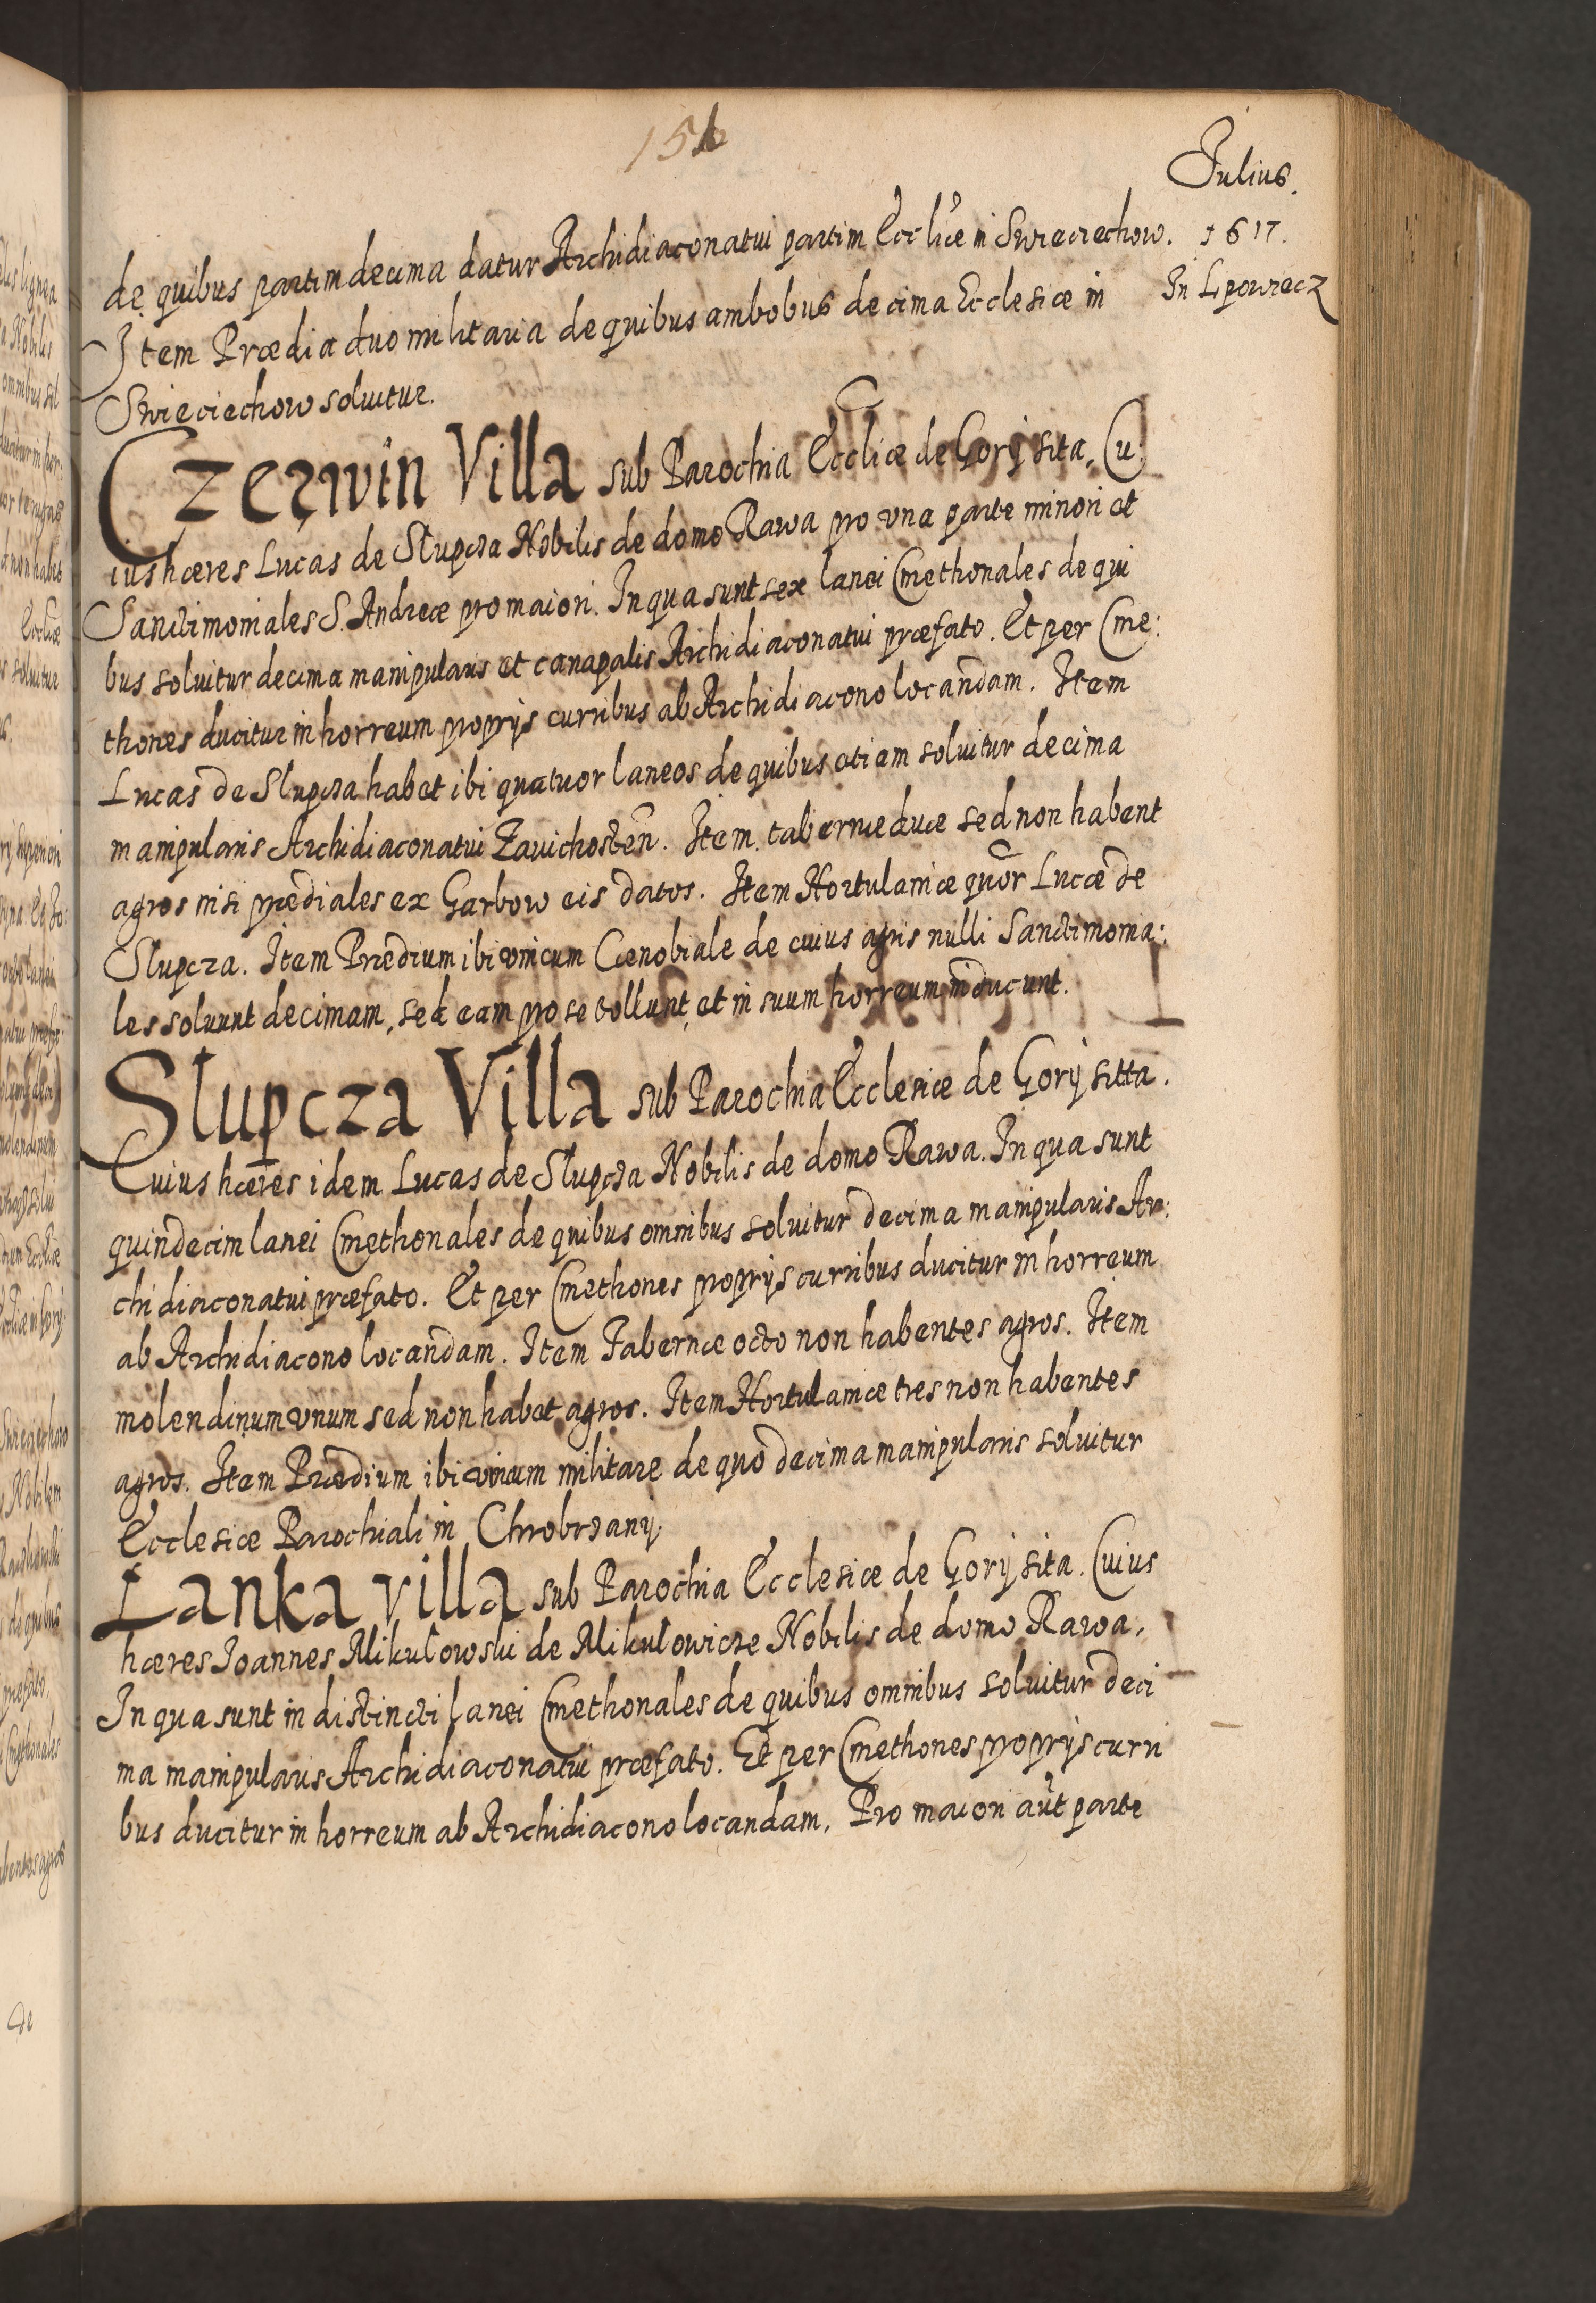 Iulius.
1617.
In Lipowiecz
de quibus partim decima datur Archidiaconatui partim Eccliæ in Swieciechow.
Item Prædia duo militaria de quibus ambobus decima Ecclesiæ in
Swieciechow soluitur.
Czerwin Villa sub Parochia Eccliæ de Gorÿ sita, Cu:
ius hæres Lucas de Slupcza Nobilis de domo Rawa pro vna parte minori et
Sanctimoniales S. Andreæ pro maiori. In qua sunt sex lanei Cmethonales de qui
bus soluitur decima manipularis et canapalis Archidiaconatui præfato. Et per Cme:
thones ducitur in horreum proprijs curribus ab Archidiacono locandam. Item
Lucas de Slupcza habet ibi quatuor laneos de quibus etiam soluitur decima
manipularis Archidiaconatui Zauichosten. Item tabernæ duæ sed non habent
agros nisi prædiales ex Garbow eis datos. Item Hortulaniæ quor Lucæ de
Slupcza. Item Prædium ibi vnicum Cænobiale de cuius agris nulli Sanctimonia:
les soluunt decimam, sed eam pro se tollunt et in suum horreum inducunt.
Slupcza Villa sub Parochia Ecclesiæ de Gorÿ sitta.
Cuius hæres idem Lucas de Slupcza Nobilis de domo Rawa. In qua sunt
quindecim lanei Cmethonales de quibus omnibus soluitur decima manipularis Ar:
chidiaconatui præfato. Et per Cmethones proprijs curribus ducitur in horreum
ab Archidiacono locandam. Item Tabernæ octo non habentes agros. Item
molendinum vnum sed non habet agros. Item Hortulaniæ tres non habentes
agros. Item Prædium ibi vnicum militare de quo decima manipularis soluitur
Ecclesiæ Parochiali in Chrobrzanÿ.
Lanka villa sub Parochia Ecclesiæ de Gorÿ sita. Cuius
hæres Joannes Mikułowski de Mikułowicze Nobilis de domo Rawa,
In qua sunt indistincti lanei Cmethonales de quibus omnibus soluitur deci
ma manipularis Archidiaconatui præfato. Et per Cmethones proprijs curri
bus ducitur in horreum ab Archidiacono locandam, Pro maiori aut parte